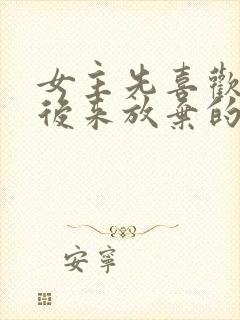 女主先喜歡
後來放棄的
安寧